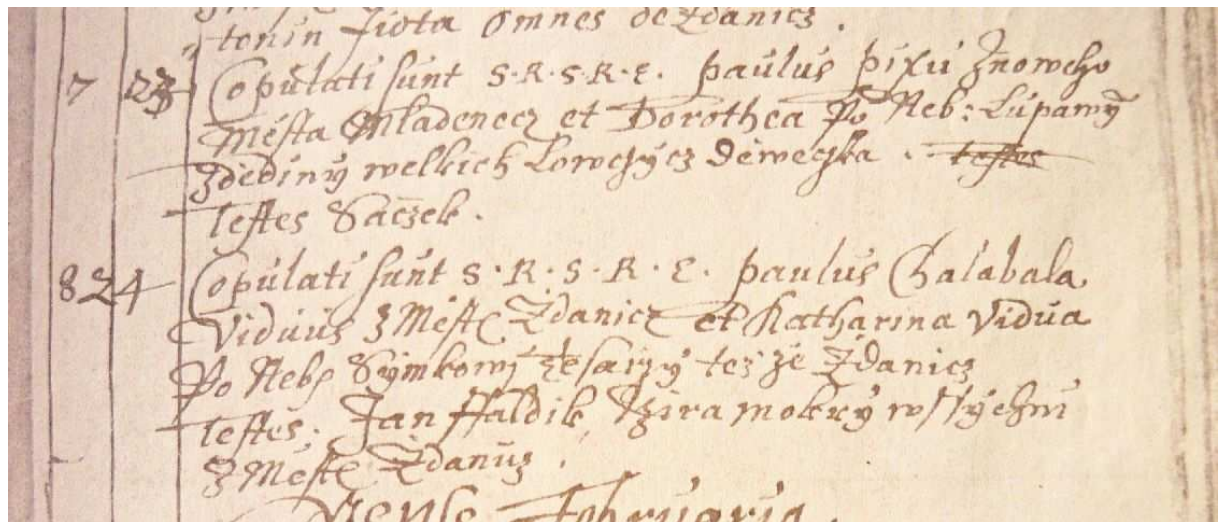 tonin Fiota omnes de Zdanicz.
7 23 Copulati sunt S. R. S. R. E. Paulus Pixu Znoweho
Mésta Mladenecz et Dorothea Po Neb: Lupamy
Zdédiny welkich Lowczycz déweczka. testes
Testes Saczek.
8 24 Copulati sunt S. R. S. R. E. Paulus Chalabala
Viduus z Méste Zdanicz et Katharina Vidua
Po Nebo Symkowj tesarzy tez ze Zdanicz
Testes: Jan Haldik, mokry wssychni
z Méste Zdanicz.
Mense Februario.